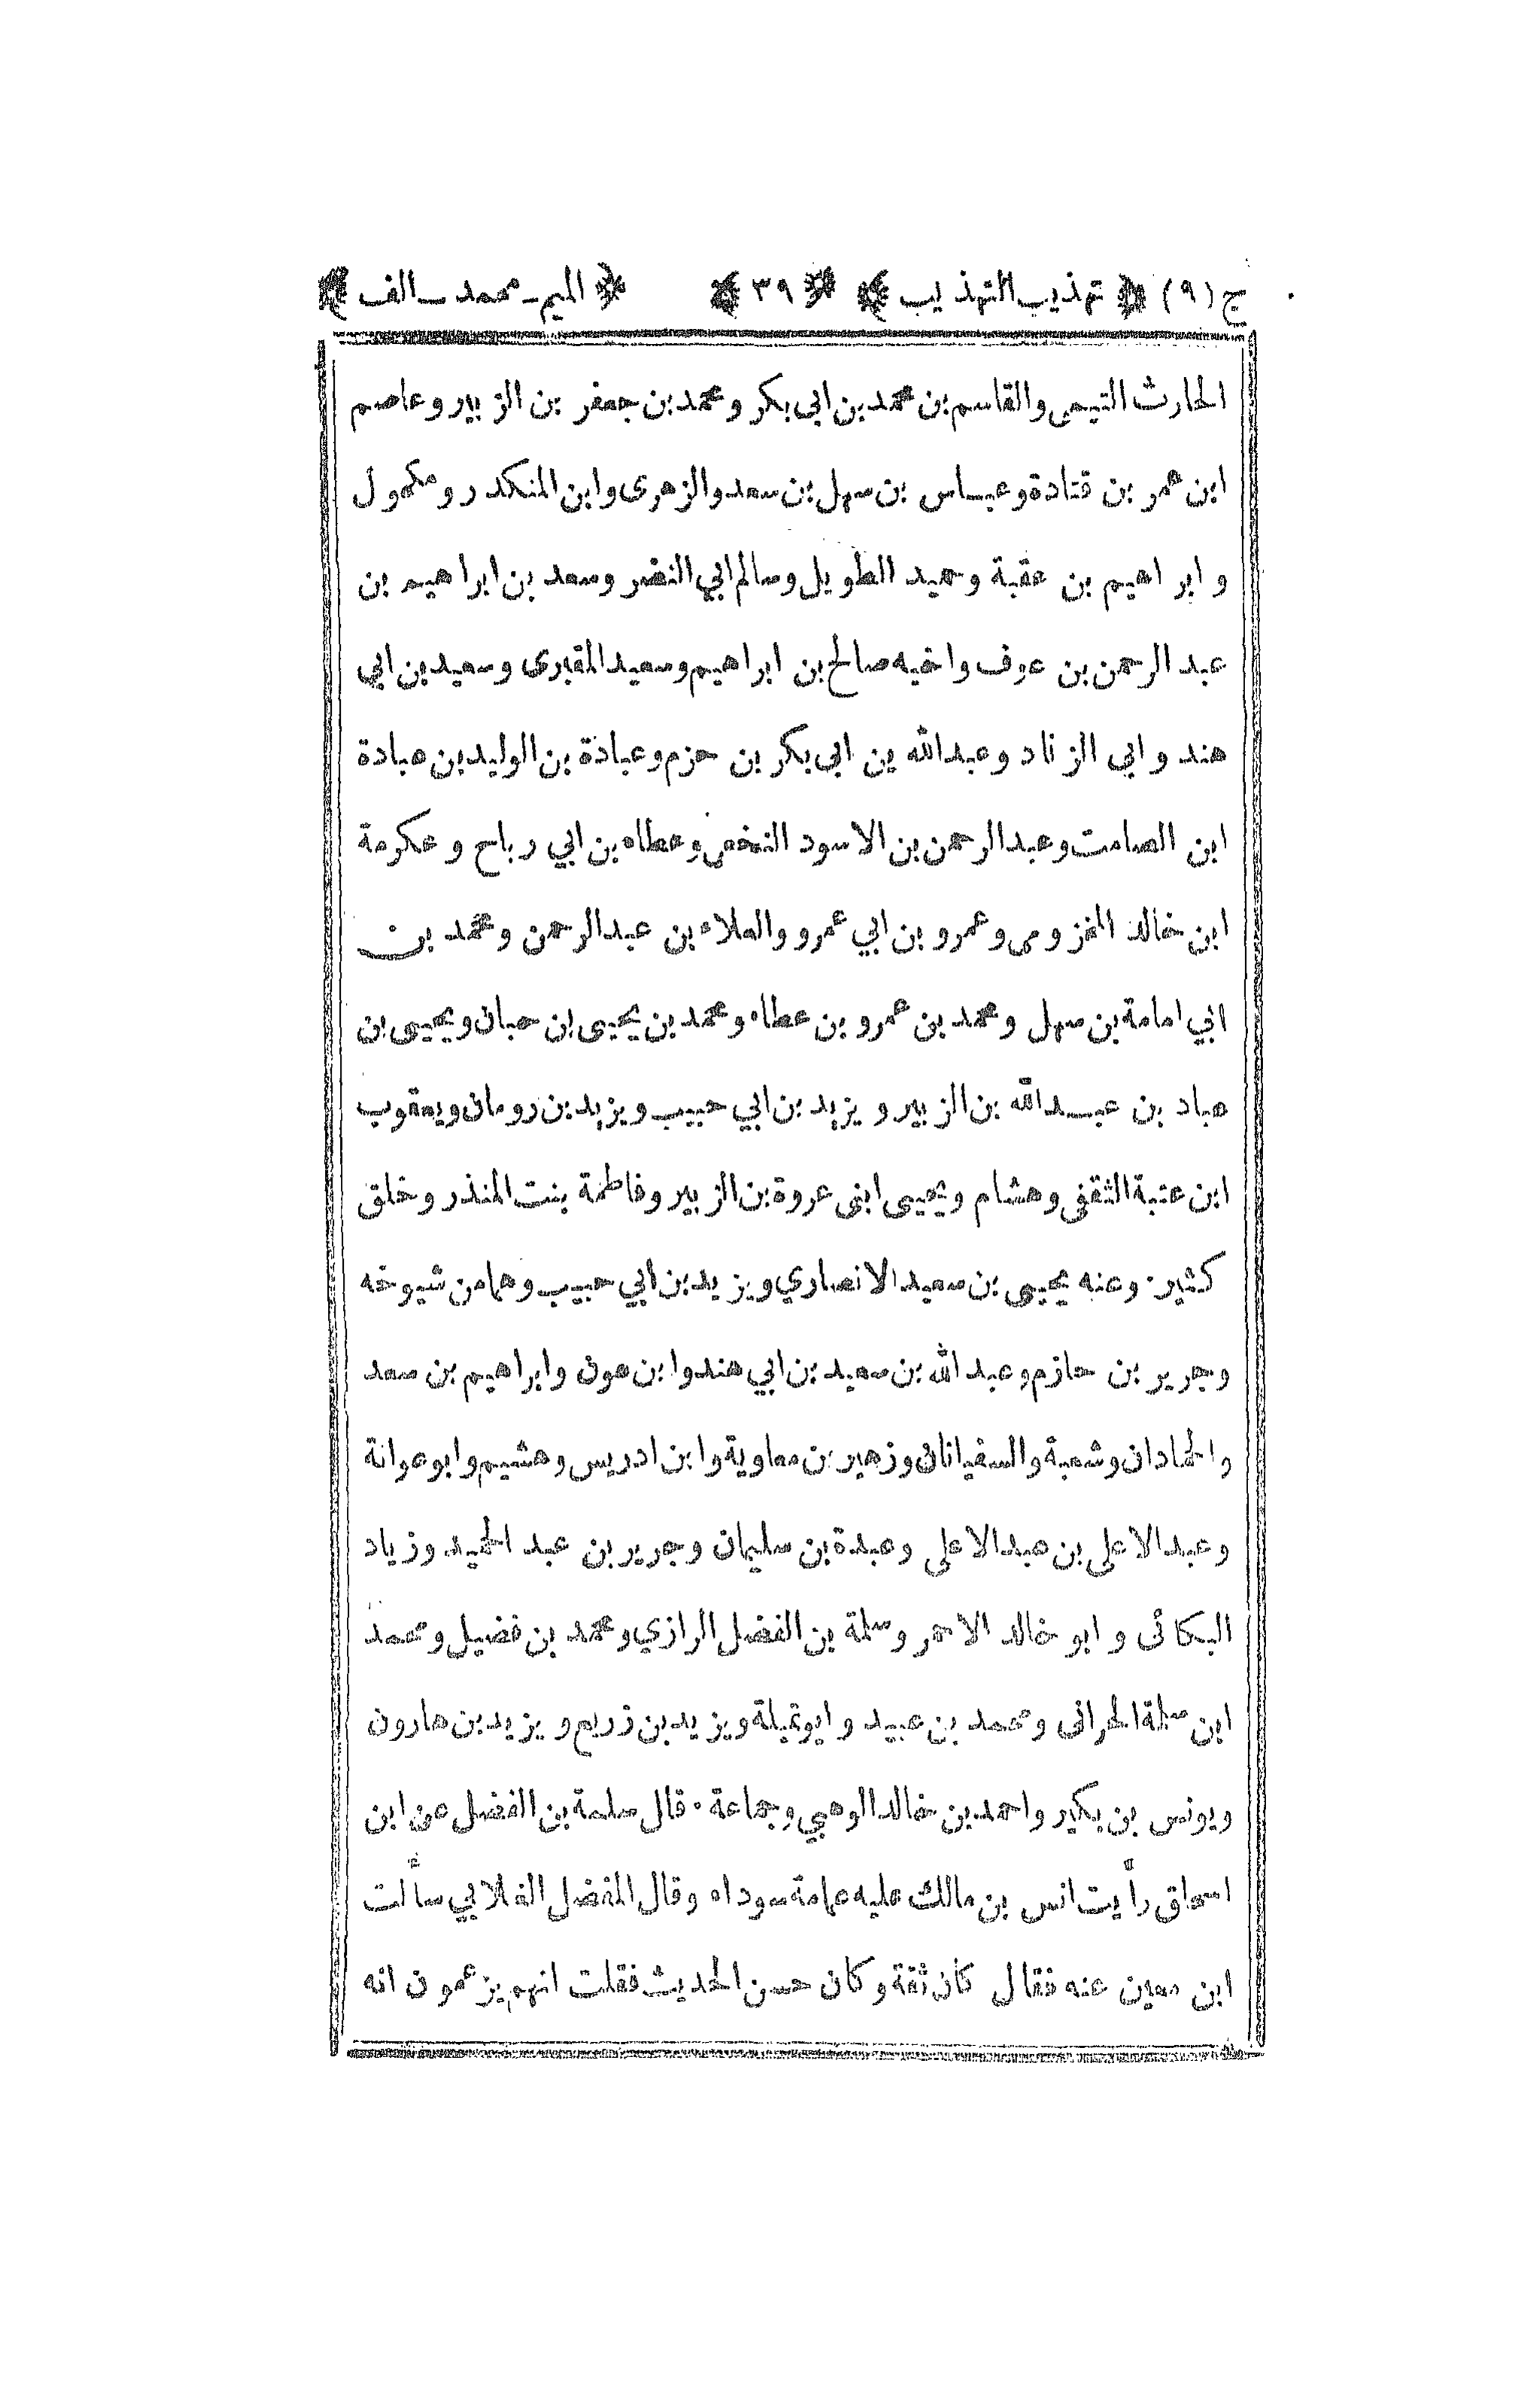 ج (٩) ﴿ تهذيب التهذيب ﴾ ﴿ ٣٩ ﴾ ﴿ الميم ـ محمد ـ الف ﴾
الحارث التيمى والقاسم بن محمد بن ابى بكر ومحمد بن جعفر بن الزبير وعاصم
ابن عمر بن قتادة وعباس بن سهل بن سعد والزهرى وابن المنكدر ومكحول
وابراهيم بن عقبة وحميد الطويل وسالم ابي النضر وسعد بن ابراهيم بن
عبد الرحمن بن عوف واخيه صالح بن ابراهيم وسعيد المقبرى وسعيد بن ابي
هند وابى الزناد وعبد الله بن ابى بكر بن حزم وعبادة بن الوليد بن عبادة
ابن الصامت وعبد الرحمن بن الاسود النخعى وعطاء بن ابي رباح وعكرمة
ابن خالد المخزومى وعمرو بن ابي عمرو والعلاء بن عبد الرحمن ومحمد بن
ابي امامة بن سهل ومحمد بن عمرو بن عطاء ومحمد بن يحيى بن حبان ويحيى بن
عباد بن عبد الله بن الزبير ويزيد بن ابي حبيب ويزيد بن رومان ويعقوب
ابن عتبة الثقفى وهشام ويحيى ابنى عروة بن الزبير وفاطمة بنت المنذر وخلق
كثير . وعنه يحيى بن سعيد الانصاري ويزيد بن ابي حبيب وهما من شيوخه
وجرير بن حازم وعبد الله بن سعيد بن ابي هند وابن عون وابراهيم بن سعد
والحمادان وشعبة والسفيانان وزهير بن معاوية وابن ادريس وهشيم وابو عوانة
وعبد الاعلى بن عبد الاعلى وعبدة بن سليمان وجرير بن عبد الحميد وزياد
البكائى وابو خالد الاحمر وسلمة بن الفضل الرازي ومحمد بن فضيل ومحمد
ابن سلمة الحرانى ومحمد بن عبيد وابو تميلة ويزيد بن زريع ويزيد بن هارون
ويونس بن بكير واحمد بن خالد الوهبي وجماعة . قال سلمة بن الفضل عن ابن
اسحاق رأيت انس بن مالك عليه عمامة سوداء وقال المفضل الغلابي سألت
ابن معين عنه فقال كان ثقة وكان حسن الحديث فقلت انهم يزعمون انه